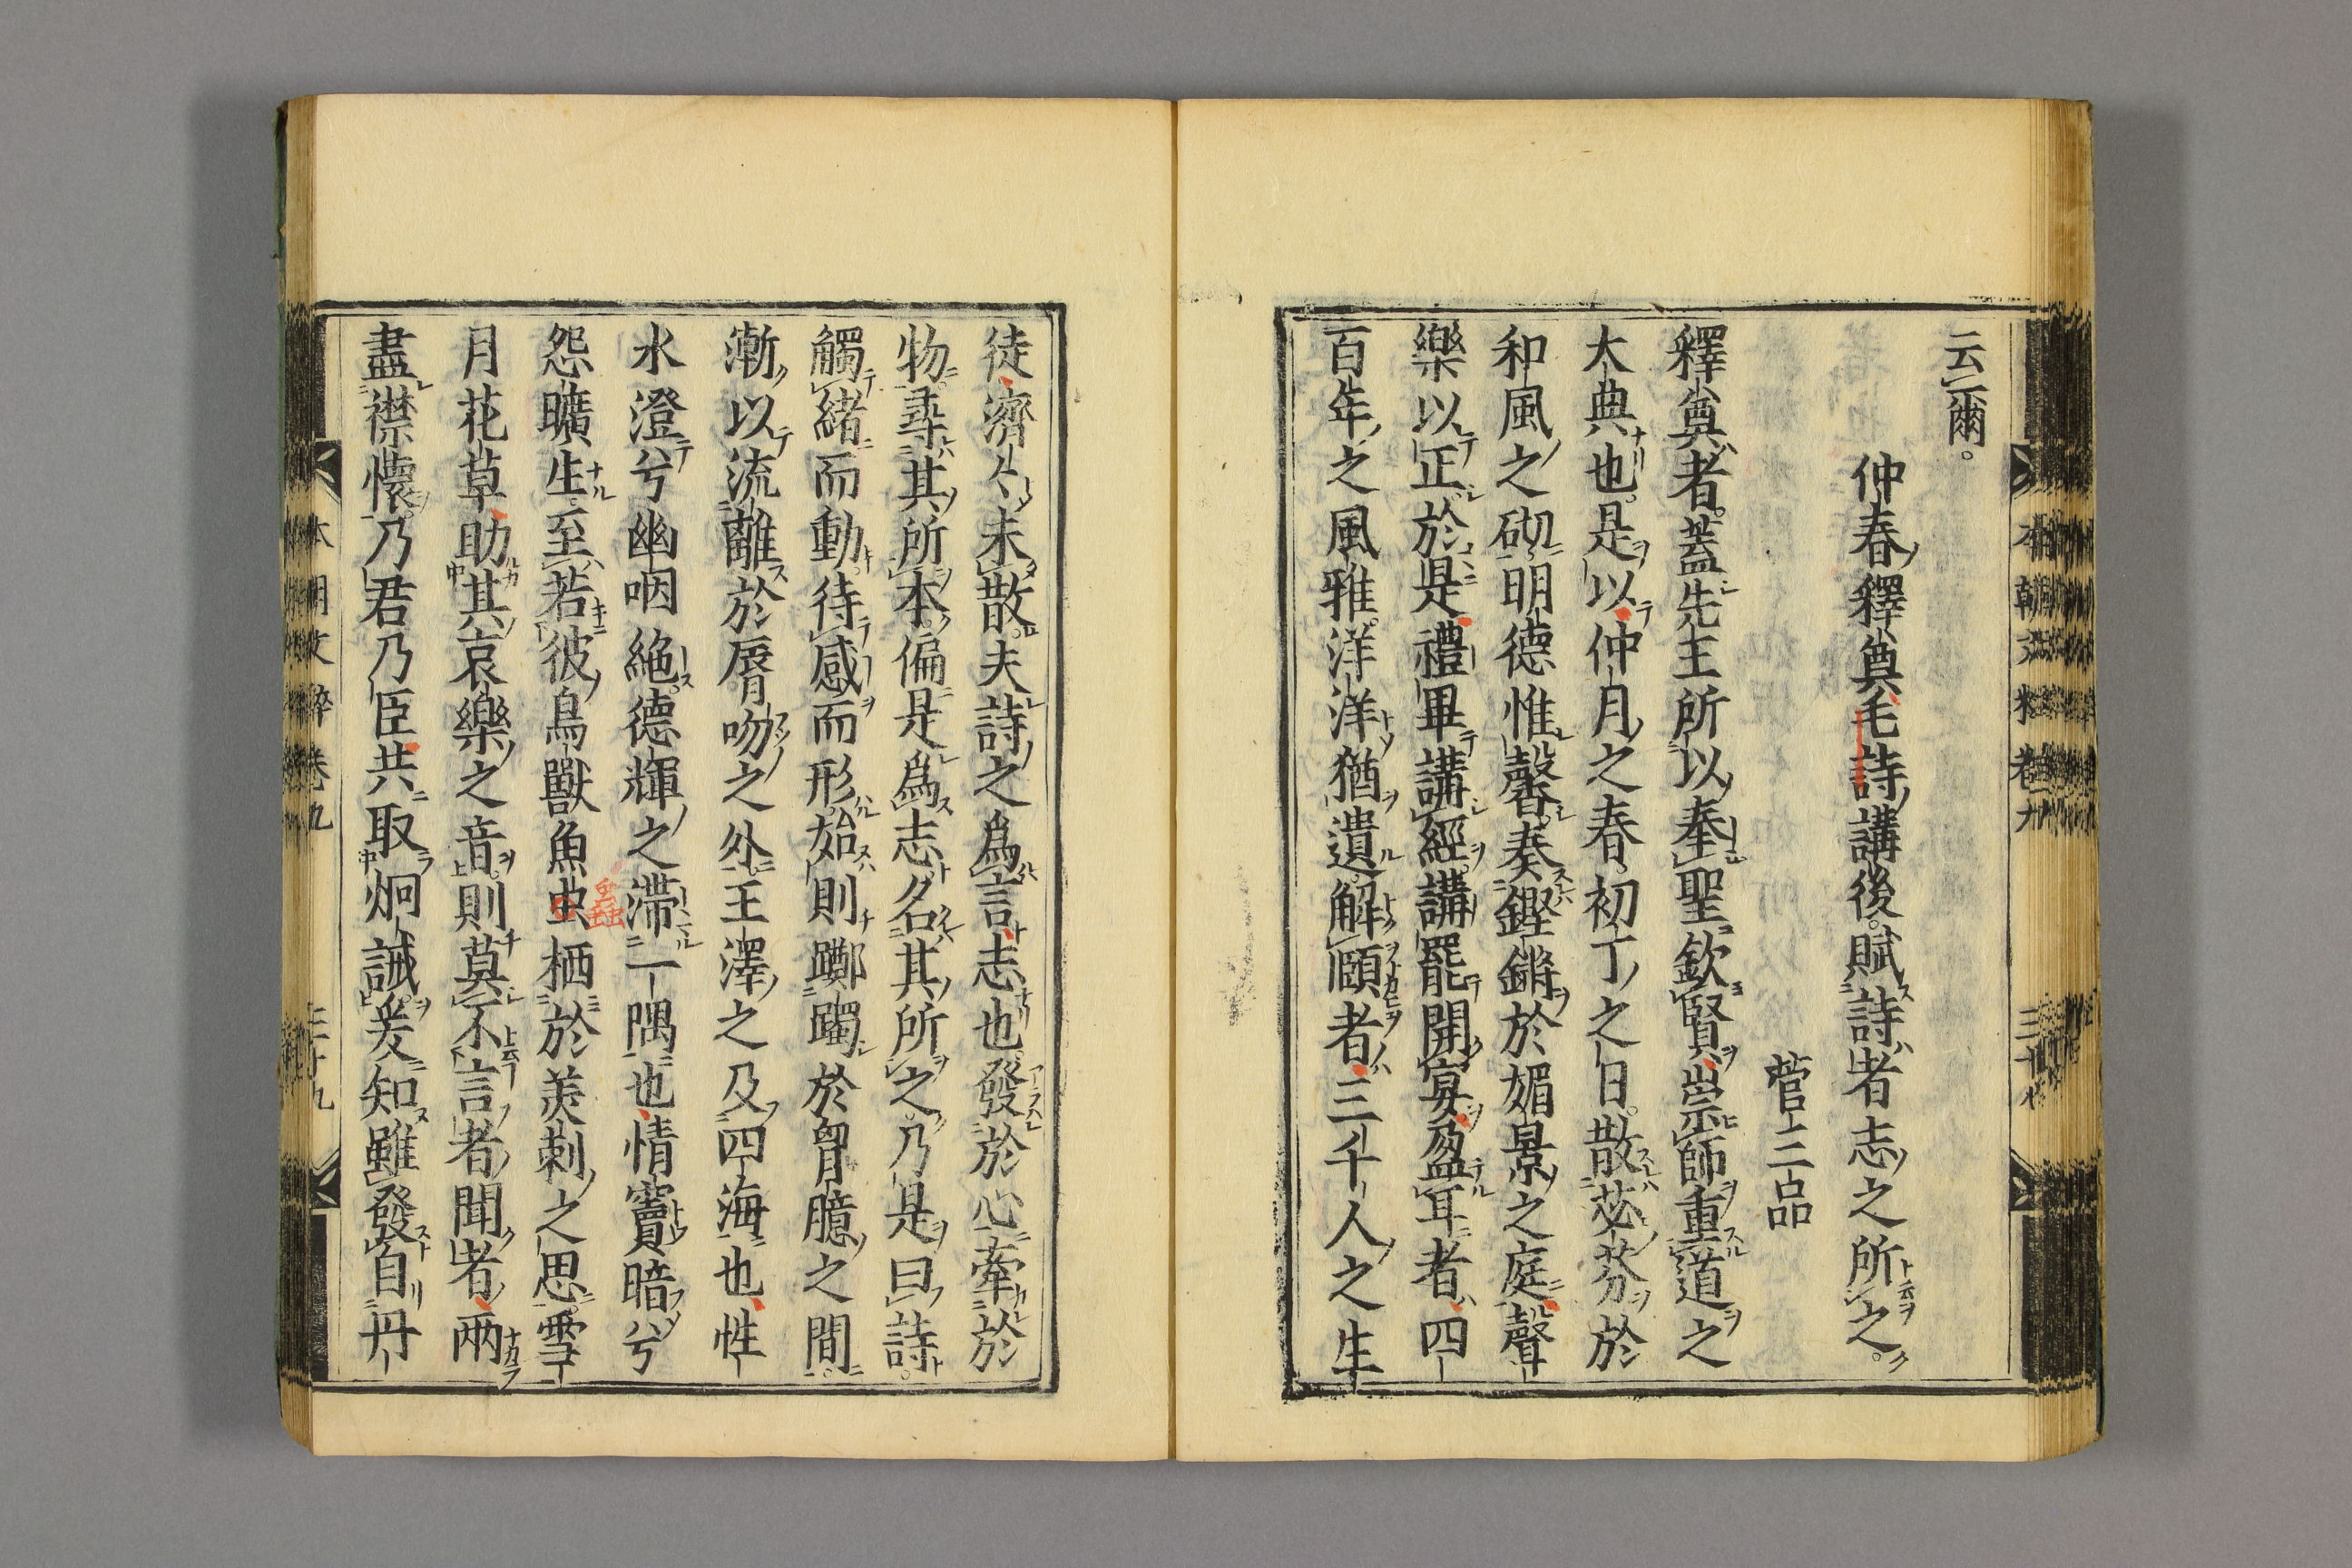 云爾。
仲春釋奠毛詩講後。賦詩者志之所之。
菅三品
釋奠者。蓋先王所以奉聖欽賢、崇師重道之
大典也。是以仲月之春。初丁之日。散苾芬於
和風之砌。明德惟馨。奏鏗鏘於媚景之庭聲
樂以正。於是禮畢講經。講罷開宴。盈耳者、四
百年之風雅。洋洋猶遺。解頤者三千人之生
徒濟々未散。夫詩之爲言志也。發於心牽於
物。尋其所本。偏是爲志。名其所之。乃是曰詩。
觸緒而動。待感而形。始則躑躅於胷臆之間。
漸以流離於脣吻之外。王澤之及四海也、性
水澄兮幽咽絶。德輝之滯一隅也、情竇暗兮
怨曠生。至若彼鳥獸魚虫栖於美刺之思。雪
蟲
月花草助其哀樂之音。則莫不言者聞者、兩
盡襟懷。乃君乃臣共取炯誡。爰知雖發自丹
本朝文粹卷九
本朝文粹卷九 三十九